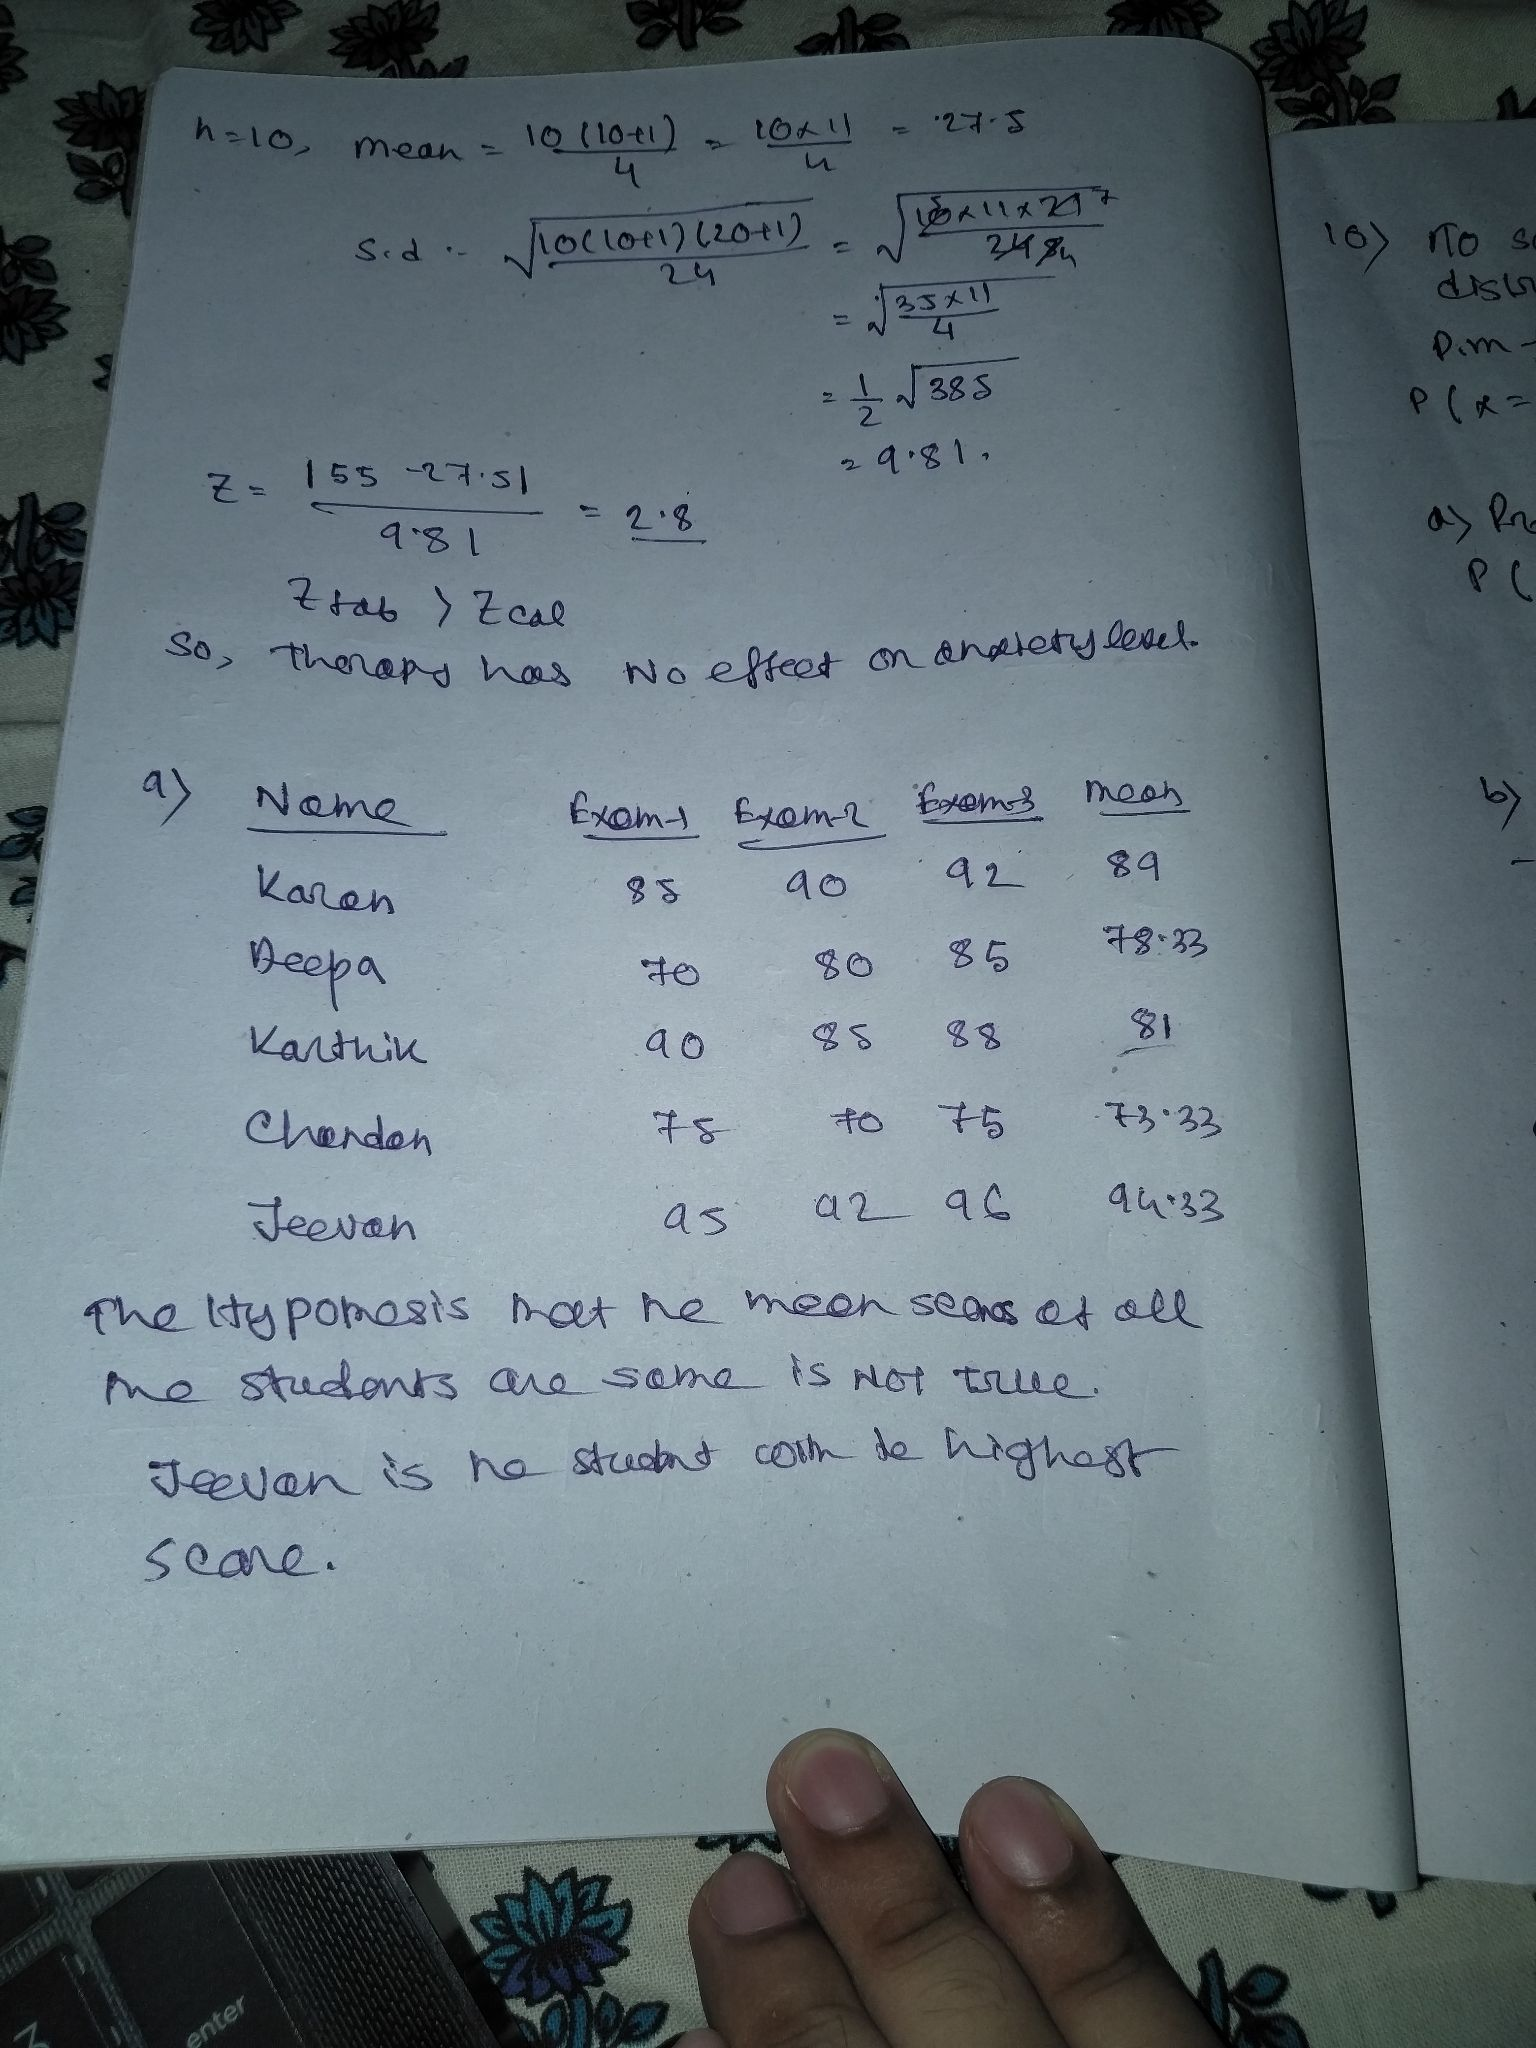 n=10, mean = 10(10+1)/4 = 10×11/4 = 27.5
s.d :- √(10(10+1)(20+1)/24) = √(10×11×21/24)
= √(35×11/4)
= 1/2 √385
= 9.81.
Z = |55 - 27.5|/9.81 = 2.8
Z tab > Z cal
So, therapy has No effect on anxiety level.
9) Name Exam-1 Exam-2 Exam-3 Mean
Karan 85 90 92 89
Deepa 70 80 85 78.33
Karthik 90 85 88 81
Chandan 75 70 75 73.33
Jeevan 95 92 96 94.33
The Hypothesis that the mean scores of all
the students are same is NOT true.
Jeevan is the student with the highest
score.
10) No
P.m
P(x=
a)
P(
b)
enter